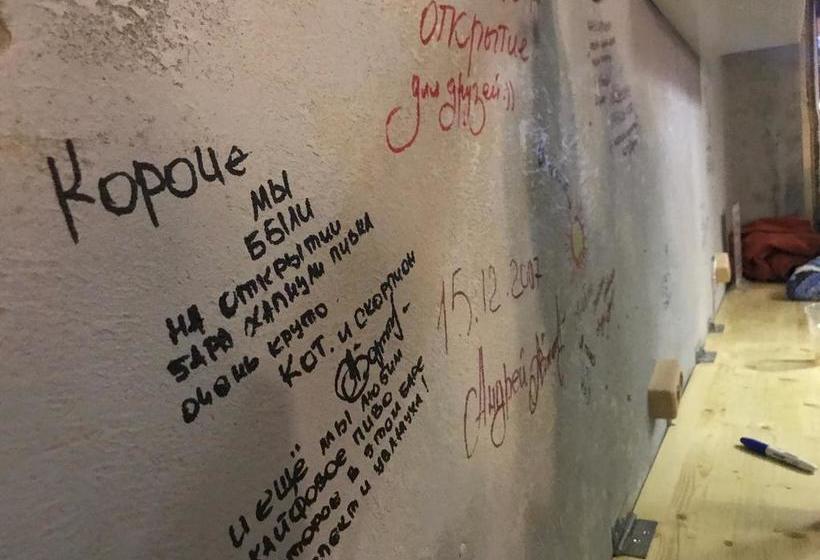 Открытие
для друзей:))
Короче
мы
были
на открытии
бара хапнули пивка
очень круто
Кот. и скорпион
15.12.2017
Андрей
и ещё мы любим
кайфовое пиво
которое в этом баре
респект и уважуха!